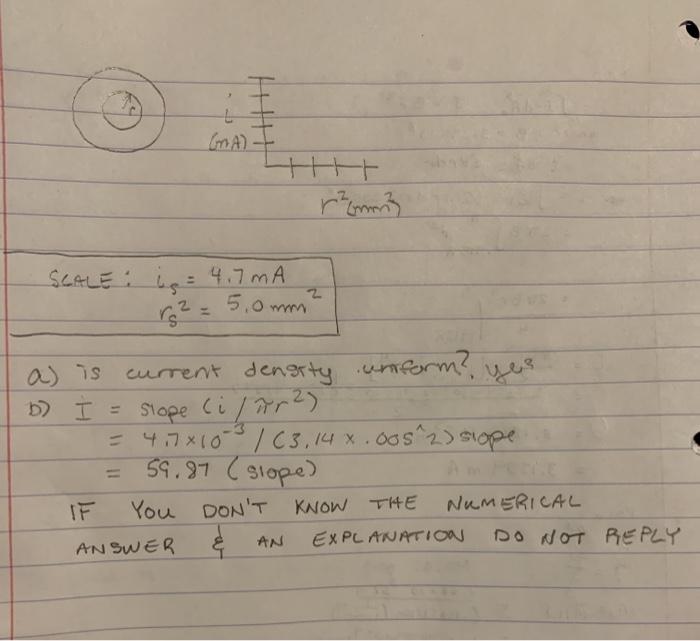 r
i
(mA)
r²(mm²)
SCALE : iₛ = 4.7 mA
rₛ² = 5.0 mm²
a) is current density uniform? yes
b) I = slope (i / πr²)
= 4.7×10⁻³ / (3.14 × .005^2) slope
= 59.87 (slope)
IF YOU DON'T KNOW THE NUMERICAL
ANSWER & AN EXPLANATION DO NOT REPLY